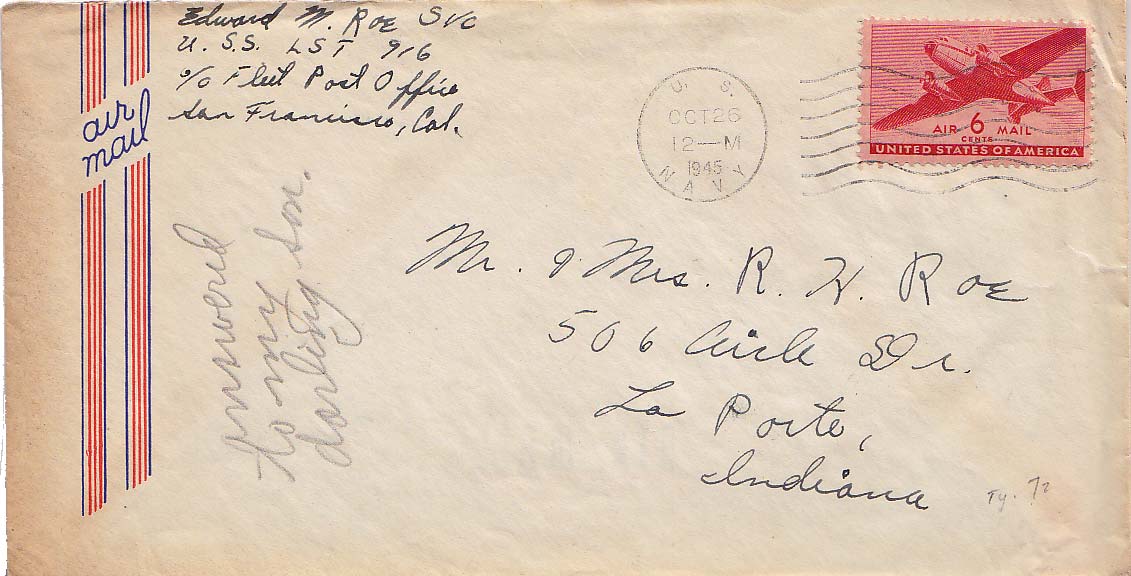 Edward M. Roe S1/c
U.S.S. LST 916
c/o Fleet Post Office
San Francisco, Cal.
air
mail
U. S.
OCT 26
12—M
1945
NAVY
AIR 6 MAIL
CENTS
UNITED STATES OF AMERICA
answered
to my
darling son.
Mr. & Mrs. R. H. Roe
506 Circle Dr.
La Porte,
Indiana